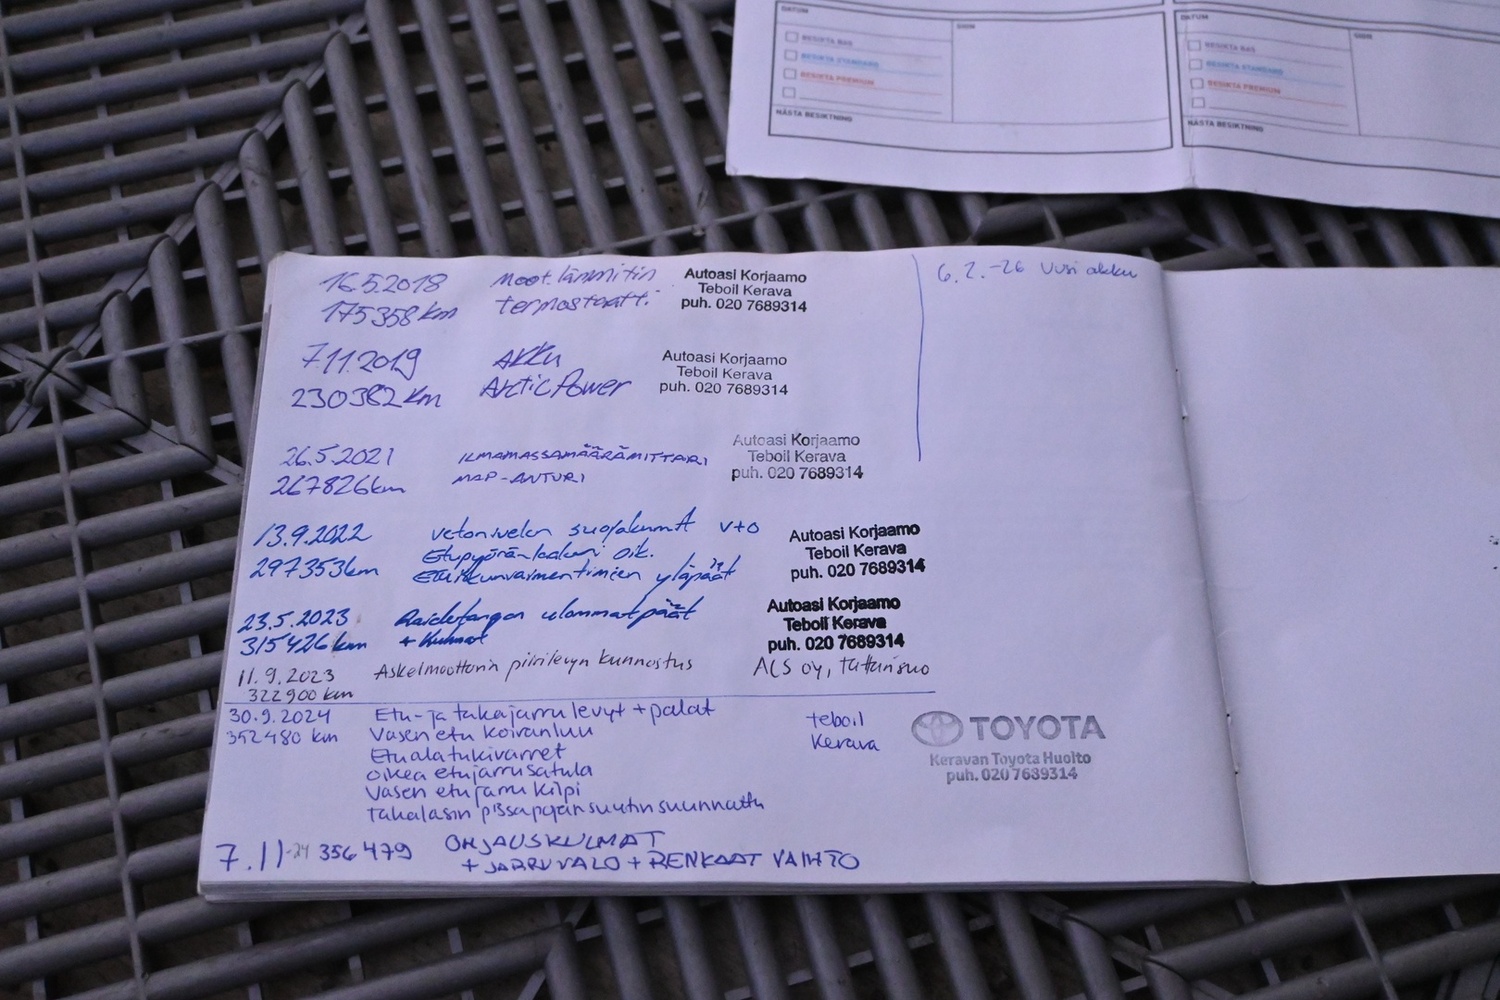 DATUM
SIGN
BESIKTA BAS
BESIKTA STANDARD
BESIKTA PREMIUM
NÄSTA BESIKTNING
DATUM
SIGN
BESIKTA BAS
BESIKTA STANDARD
BESIKTA PREMIUM
NÄSTA BESIKTNING
16.5.2018 moot.lämmitin Autoasi Korjaamo
175358 km termostaatti. Teboil Kerava
puh. 020 7689314
7.11.2019 AKKU Autoasi Korjaamo
230382 km Arctic Power Teboil Kerava
puh. 020 7689314
26.5.2021 ILMAMASSAMÄÄRÄMITTARI Autoasi Korjaamo
267826 km MAP-ANTURI Teboil Kerava
puh. 020 7689314
13.9.2022 vetonivelen suojakumit v+o Autoasi Korjaamo
297353 km Etupyörän laakeri oik. Teboil Kerava
Etuiskunvaimentimien yläpäät puh. 020 7689314
23.5.2023 Raidetangon ulommat päät Autoasi Korjaamo
315426 km + kulmat Teboil Kerava
puh. 020 7689314
11.9.2023 Askelmoottorin piirilevyn kunnostus ACS oy, Tattarisuo
322900 km
30.9.2024 Etu- ja takajarrulevyt + palat teboil
352480 km Vasen etu koiranluu Kerava
Etualatukivarret
oikea etujarrusatula
Vasen etujarrukilpi
Takalasin pissapojan suutin suunnattu
TOYOTA
Keravan Toyota Huolto
puh. 020 7689314
7.11-24 356479 OHJAUSKULMAT
+ JARRUVALO + RENKAAT VAIHTO
6.2.-26 Uusi akku